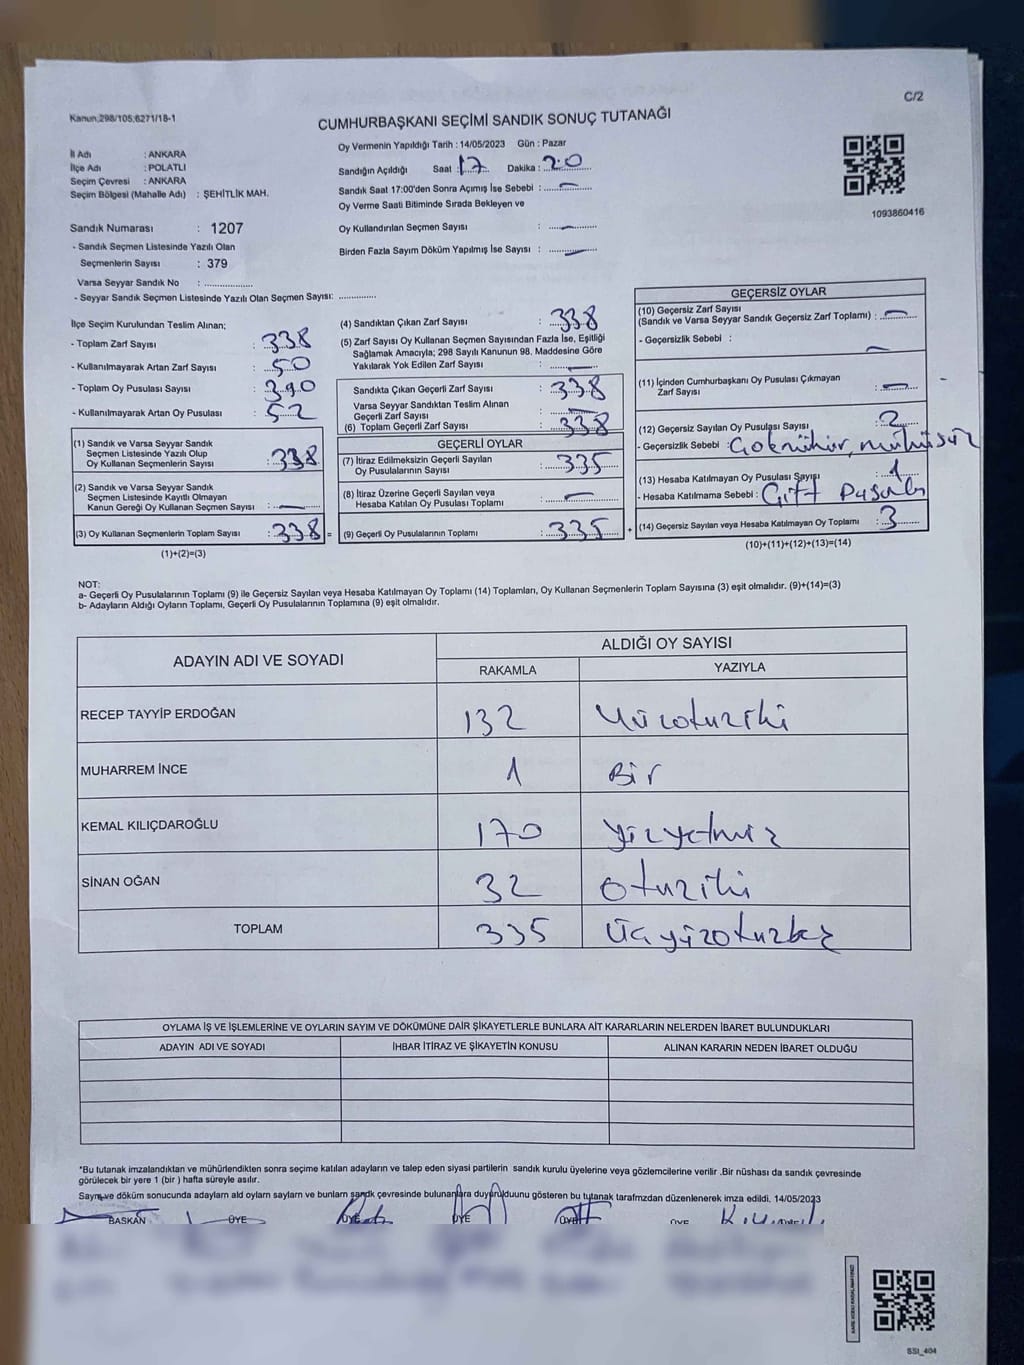 C/2
Kanun;298/105;6271/18-1
CUMHURBAŞKANI SEÇİMİ SANDIK SONUÇ TUTANAĞI
İl Adı : ANKARA
İlçe Adı : POLATLI
Seçim Çevresi : ANKARA
Seçim Bölgesi (Mahalle Adı) : ŞEHİTLİK MAH.
Oy Vermenin Yapıldığı Tarih : 14/05/2023 Gün : Pazar
Sandığın Açıldığı Saat : 17 Dakika : 20
Sandık Saat 17:00'den Sonra Açımış İse Sebebi : —
Oy Verme Saati Bitiminde Sırada Bekleyen ve
Oy Kullandırılan Seçmen Sayısı : —
Birden Fazla Sayım Döküm Yapılmış İse Sayısı : —
1093860416
Sandık Numarası : 1207
- Sandık Seçmen Listesinde Yazılı Olan
Seçmenlerin Sayısı : 379
Varsa Seyyar Sandık No : ..................
- Seyyar Sandık Seçmen Listesinde Yazılı Olan Seçmen Sayısı: ..............
İlçe Seçim Kurulundan Teslim Alınan;
- Toplam Zarf Sayısı : 338
- Kullanılmayarak Artan Zarf Sayısı : 50
- Toplam Oy Pusulası Sayısı : 390
- Kullanılmayarak Artan Oy Pusulası : 52
(1) Sandık ve Varsa Seyyar Sandık
Seçmen Listesinde Yazılı Olup
Oy Kullanan Seçmenlerin Sayısı : 338
(2) Sandık ve Varsa Seyyar Sandık
Seçmen Listesinde Kayıtlı Olmayan
Kanun Gereği Oy Kullanan Seçmen Sayısı : —
(3) Oy Kullanan Seçmenlerin Toplam Sayısı : 338 =
(1)+(2)=(3)
(4) Sandıktan Çıkan Zarf Sayısı : 338
(5) Zarf Sayısı Oy Kullanan Seçmen Sayısından Fazla İse, Eşitliği
Sağlamak Amacıyla; 298 Sayılı Kanunun 98. Maddesine Göre
Yakılarak Yok Edilen Zarf Sayısı : —
Sandıkta Çıkan Geçerli Zarf Sayısı : 338
Varsa Seyyar Sandıktan Teslim Alınan
Geçerli Zarf Sayısı : —
(6) Toplam Geçerli Zarf Sayısı : 338
GEÇERLİ OYLAR
(7) İtiraz Edilmeksizin Geçerli Sayılan
Oy Pusulalarının Sayısı : 335
(8) İtiraz Üzerine Geçerli Sayılan veya
Hesaba Katılan Oy Pusulası Toplamı : —
(9) Geçerli Oy Pusulalarının Toplamı : 335 +
GEÇERSİZ OYLAR
(10) Geçersiz Zarf Sayısı
(Sandık ve Varsa Seyyar Sandık Geçersiz Zarf Toplamı) : —
- Geçersizlik Sebebi : —
(11) İçinden Cumhurbaşkanı Oy Pusulası Çıkmayan
Zarf Sayısı : —
(12) Geçersiz Sayılan Oy Pusulası Sayısı : 2
- Geçersizlik Sebebi : mühüsüz
(13) Hesaba Katılmayan Oy Pusulası Sayısı : 1
- Hesaba Katılmama Sebebi : Çift Pusula
(14) Geçersiz Sayılan veya Hesaba Katılmayan Oy Toplamı : 3
(10)+(11)+(12)+(13)=(14)
NOT:
a- Geçerli Oy Pusulalarının Toplamı (9) ile Geçersiz Sayılan veya Hesaba Katılmayan Oy Toplamı (14) Toplamları, Oy Kullanan Seçmenlerin Toplam Sayısına (3) eşit olmalıdır. (9)+(14)=(3)
b- Adayların Aldığı Oyların Toplamı, Geçerli Oy Pusulalarının Toplamına (9) eşit olmalıdır.
ADAYIN ADI VE SOYADI ALDIĞI OY SAYISI
RAKAMLA YAZIYLA
RECEP TAYYİP ERDOĞAN 132 Yüzotuziki
MUHARREM İNCE 1 Bir
KEMAL KILIÇDAROĞLU 170 Yüzyetmiş
SİNAN OĞAN 32 otuziki
TOPLAM 335 Üçyüzotuzbeş
OYLAMA İŞ VE İŞLEMLERİNE VE OYLARIN SAYIM VE DÖKÜMÜNE DAİR ŞİKAYETLERLE BUNLARA AİT KARARLARIN NELERDEN İBARET BULUNDUKLARI
ADAYIN ADI VE SOYADI İHBAR İTİRAZ VE ŞİKAYETİN KONUSU ALINAN KARARIN NEDEN İBARET OLDUĞU
*Bu tutanak imzalandıktan ve mühürlendikten sonra seçime katılan adayların ve talep eden siyasi partilerin sandık kurulu üyelerine veya gözlemcilerine verilir .Bir nüshası da sandık çevresinde
görülecek bir yere 1 (bir ) hafta süreyle asılır.
Sayım ve döküm sonucunda adaylarn ald oylarn saylarn ve bunlarn sandk çevresinde bulunanlara duyurulduunu gösteren bu tutanak tarafmzdan düzenlenerek imza edildi. 14/05/2023
BAŞKAN ÜYE ÜYE ÜYE ÜYE ÜYE
SSI_404